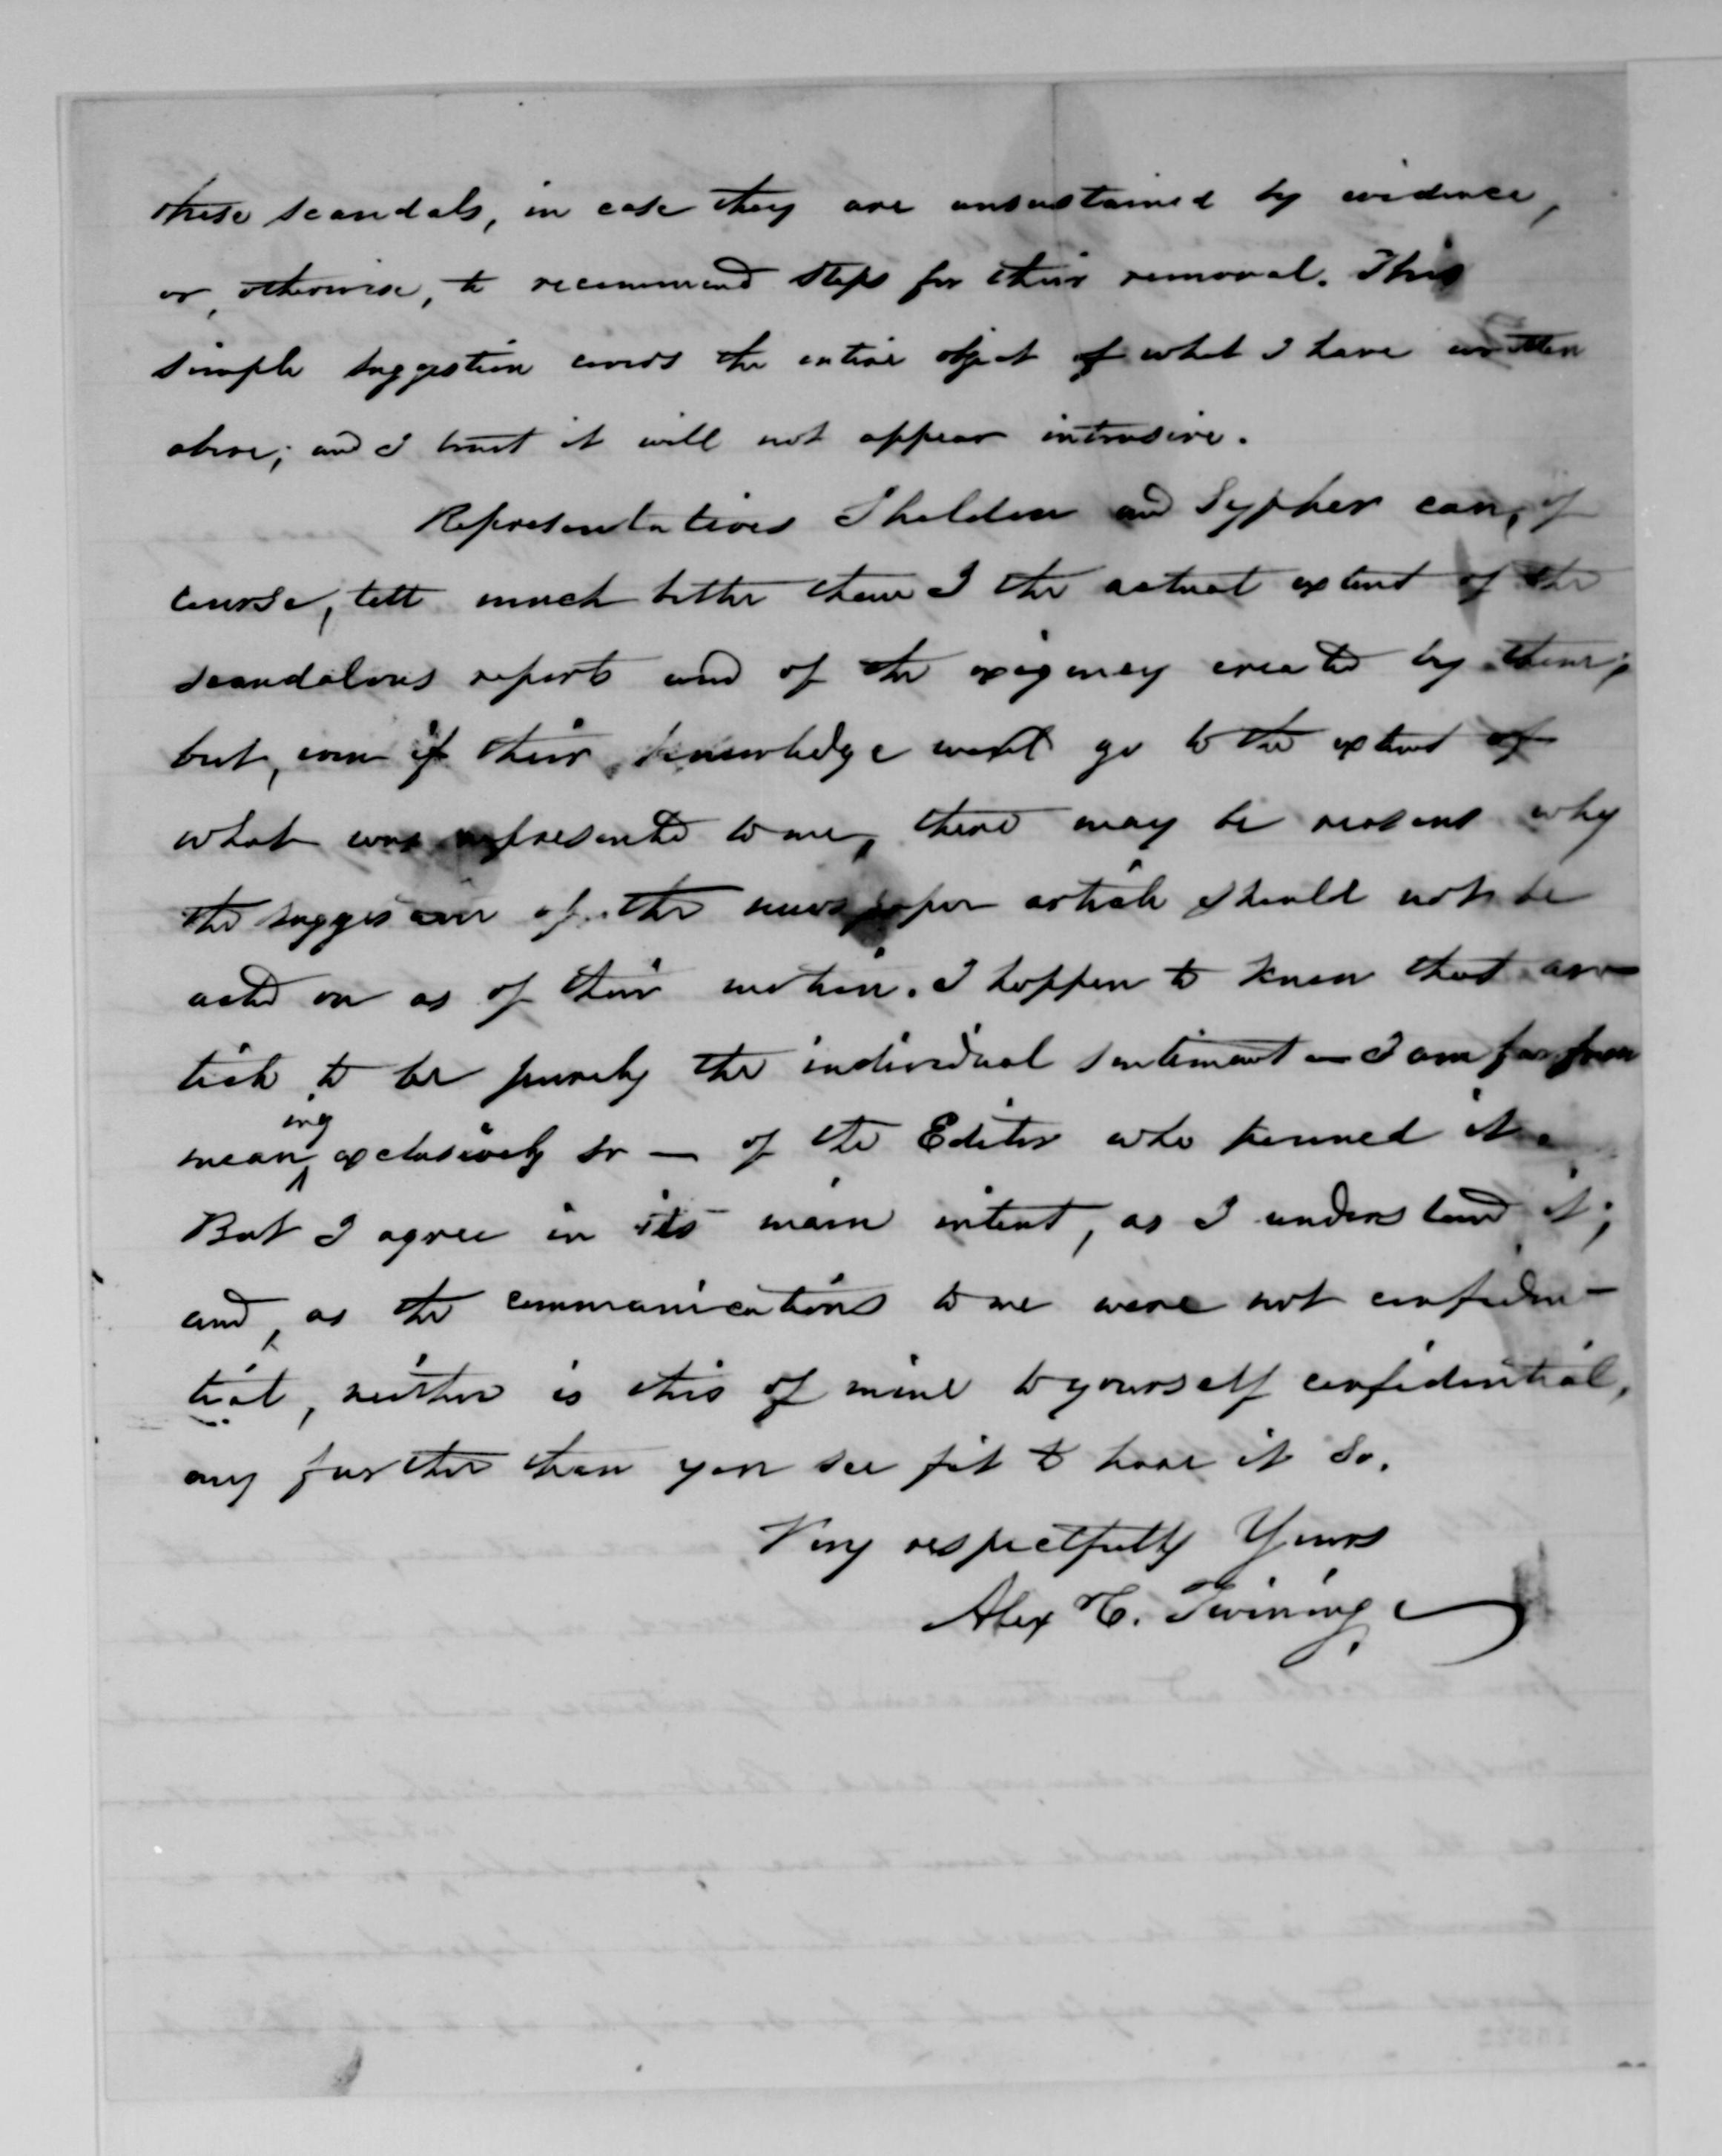 these scandals, in case they are unsustained by evidence,
or, otherwise, to recommend steps for their removal. This
simple suggestion covers the entire object of what I have written
above; and I trust it will not appear intrusive.
Representatives Sheldon and Sypher can, of
course, tell much better than I the actual extent of the
scandalous reports and of the exigency created by them;
but, even if their knowledge went go to the extent of
what was represented to me, there may be reasons why
the suggestion of the newspaper article should not be
acted on as of their motion. I happen to know that ar-
ticle to be purely the individual sentiment — I am far from
meaning exclusively so — of the Editor who penned it.
But I agree in its main intent, as I understand it;
and, as the communications to me were not confiden-
tial, neither is this of mine to yourself confidential,
any further than you see fit to have it so.
Very respectfully Yours
Alex C. Twining